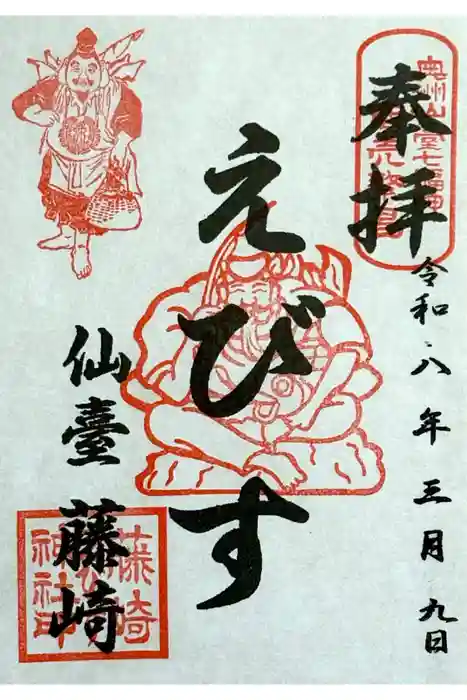 奉拝
令和八年三月九日
えびす
仙臺
藤崎
奥州仙臺七福神
藤崎
神社印